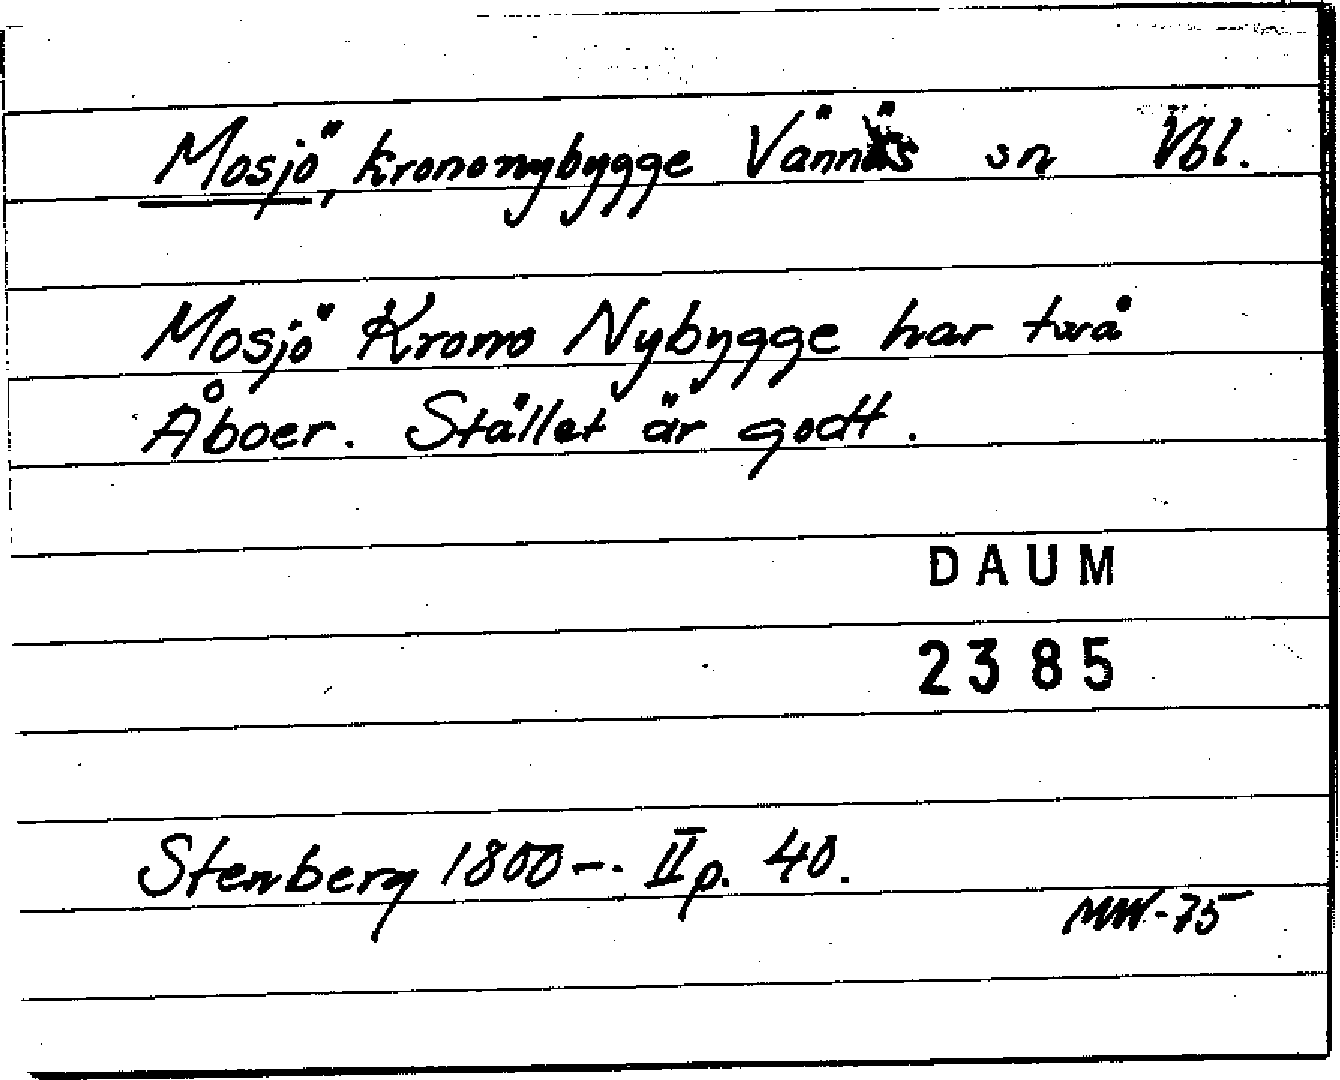 Mosjö, kronomybygge Vännäs sn Vbl.
Mosjö Krono Nybygge har twå
Åboer. Stället är godt.
DAUM
2385
Stenberg 1800-. II p. 40.
MW-75